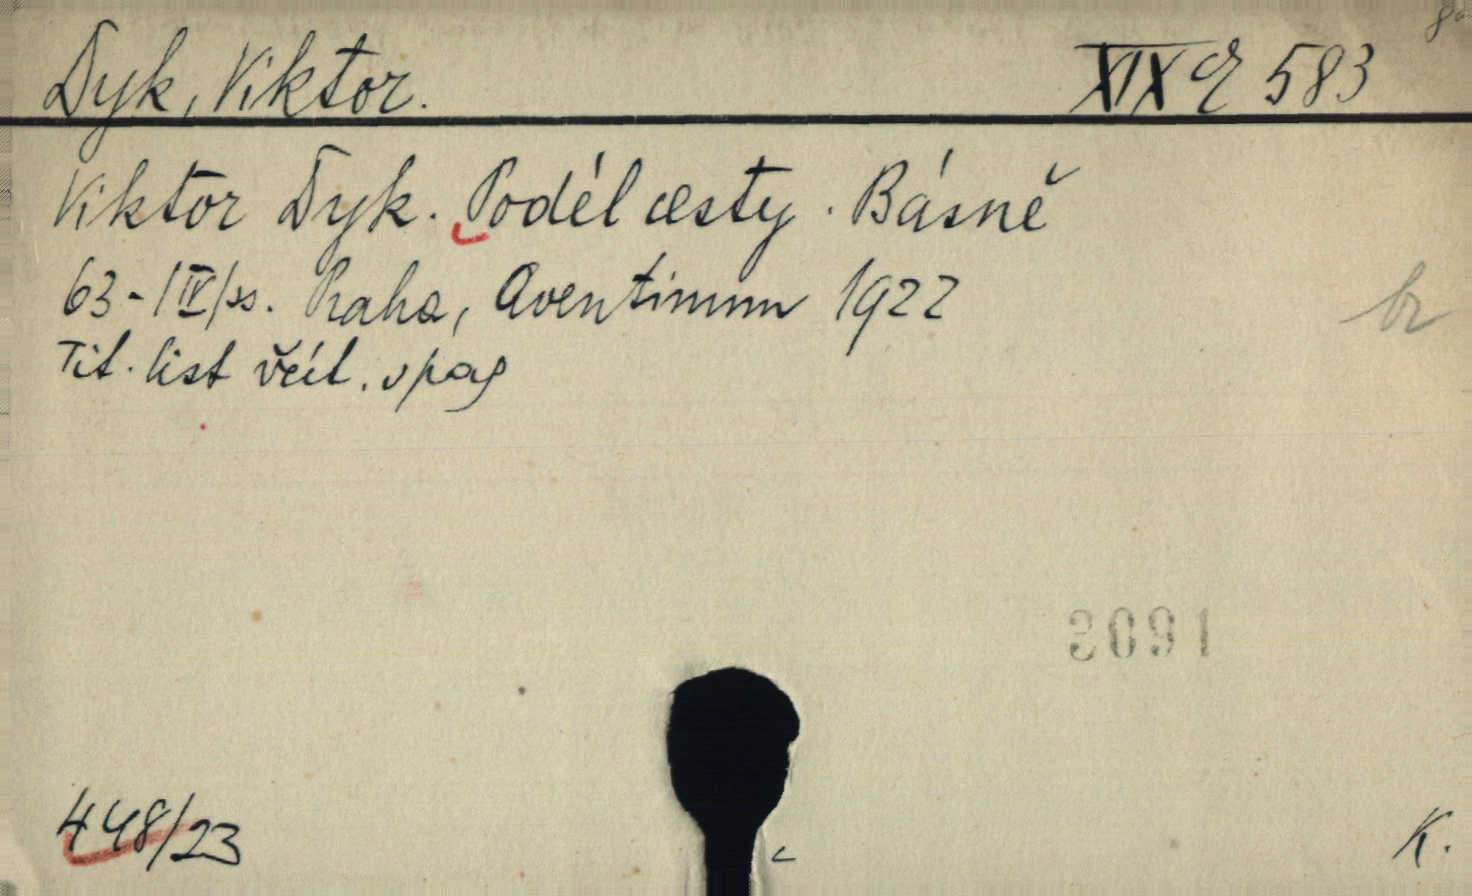 8°
Dyk, Viktor. XIX
583
Viktor Dyk. Podél cesty. Básně
63-1 IV/ss. Praha, Aventinum 1922
Tit. list včít. v pag
br
3091
448/23
K.